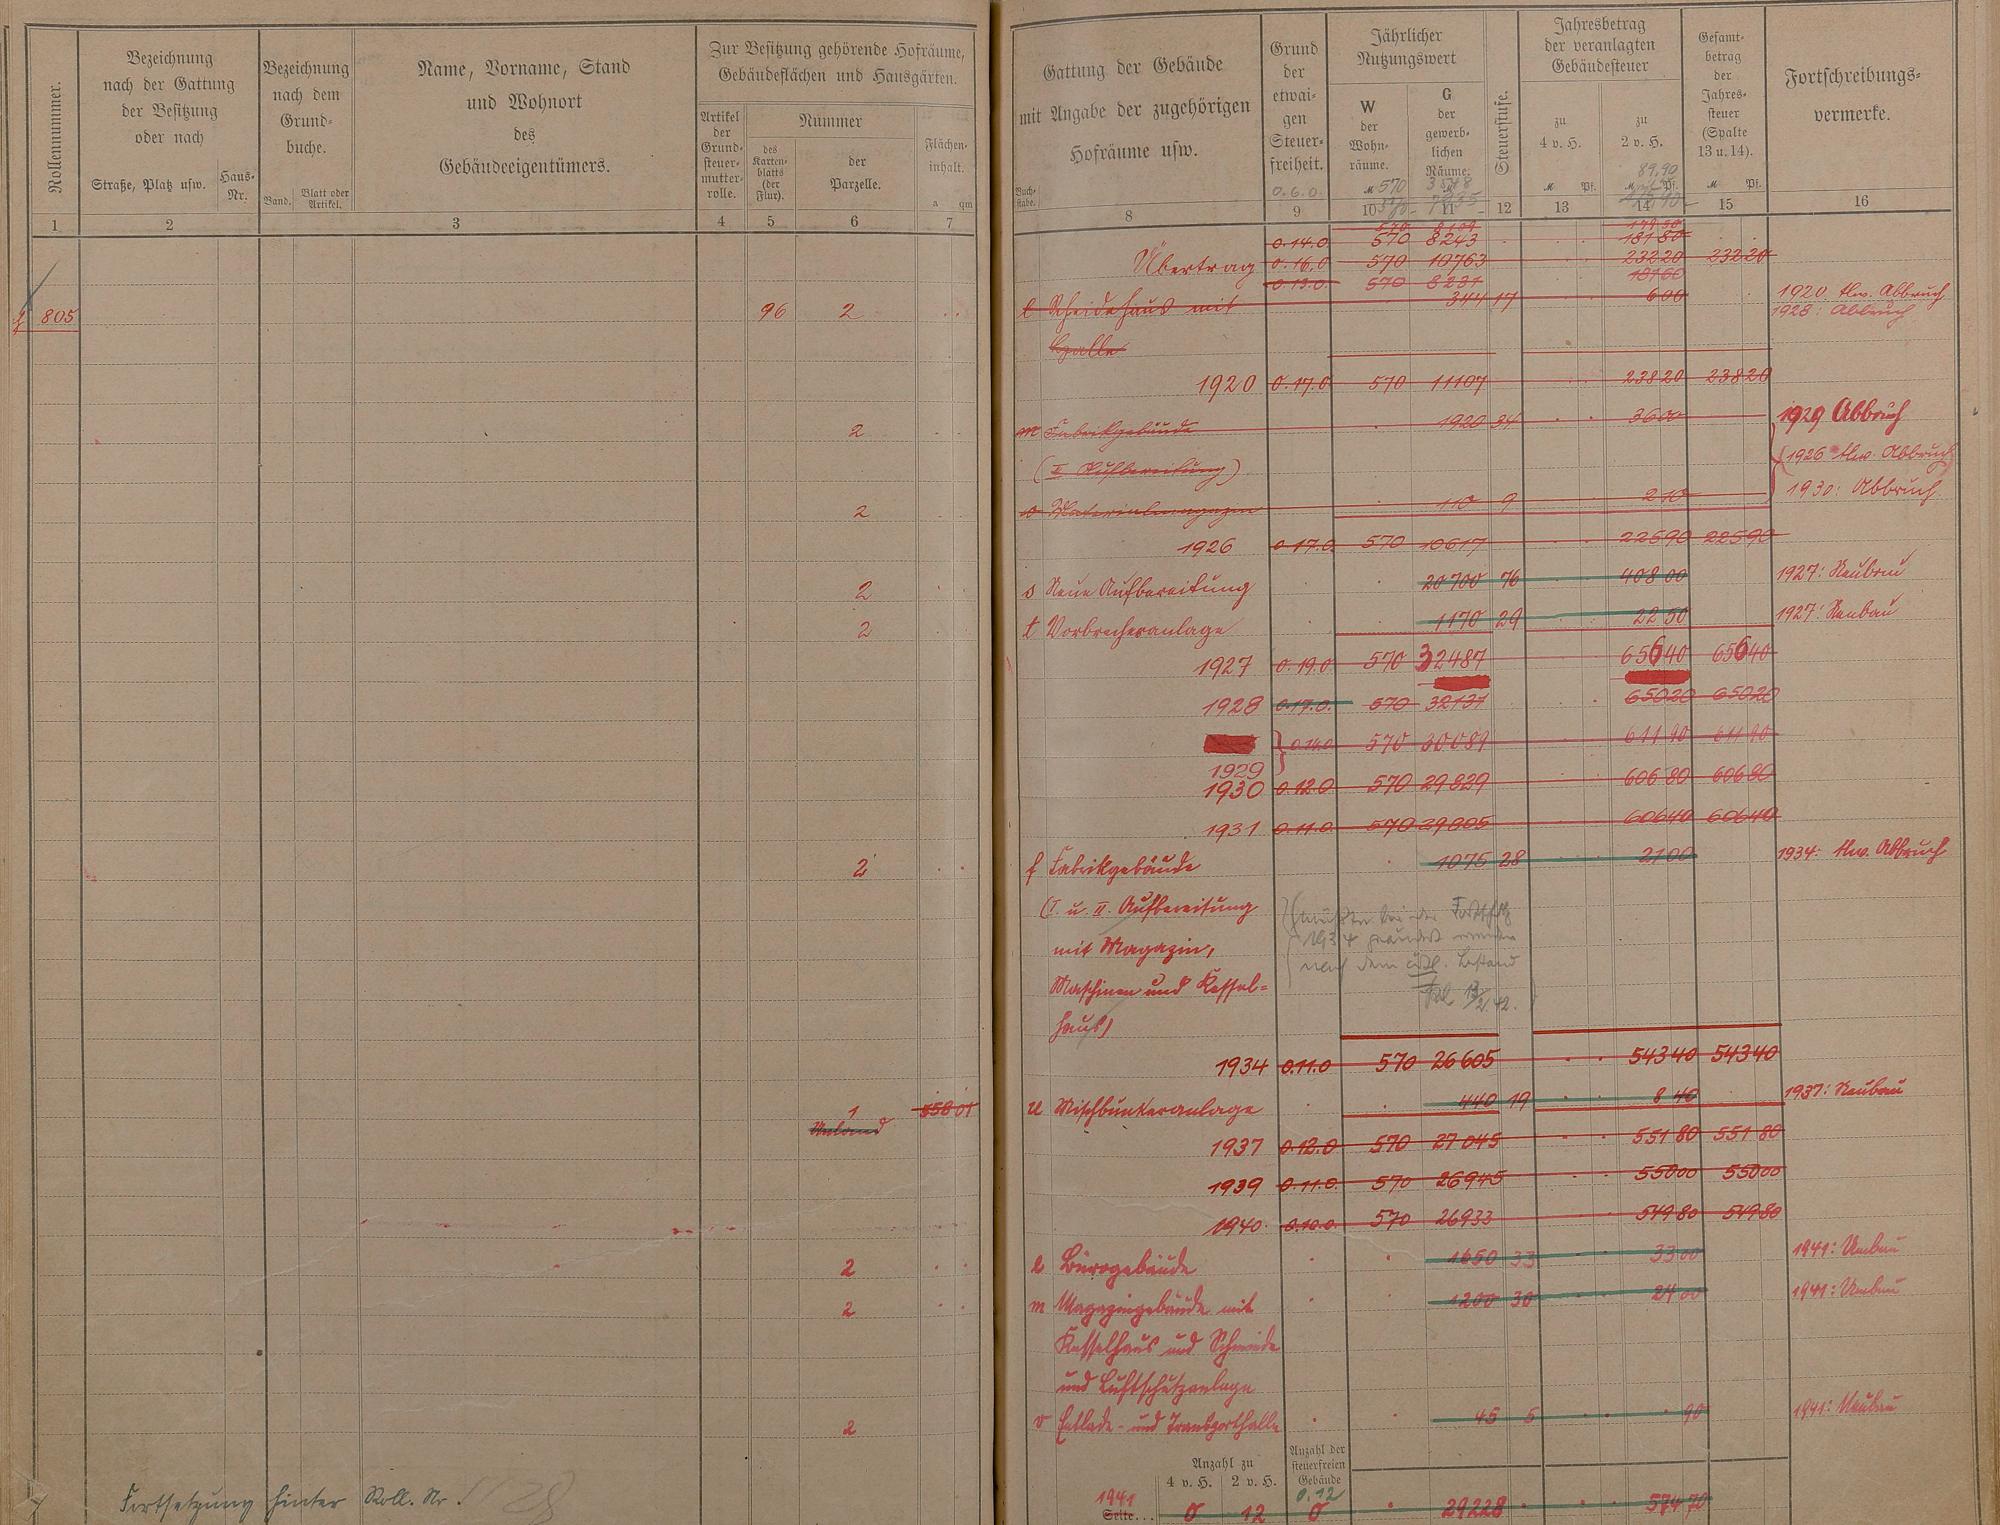 Rollennummer.
Bezeichnung
nach der Gattung
der Besitzung
oder nach
Straße, Platz usw.
Haus-
Nr.
Bezeichnung
nach dem
Grund-
buche.
Band.
Blatt oder
Artikel.
Name, Vorname, Stand
und Wohnort
des
Gebäudeeigentümers.
Zur Besitzung gehörende Hofräume,
Gebäudeflächen und Hausgärten.
Artikel
der
Grund-
steuer-
mutter-
rolle.
Nummer
des
Karten-
blatts
(der
Flur).
der
Parzelle.
Flächen-
inhalt.
a qm
1 2 3 4 5 6 7
805 96 2
2
2
2
2
2
1 558 01
2
2
2
Fortsetzung hinter Roll. Nr. 28
Gattung der Gebäude
mit Angabe der zugehörigen
Hofräume usw.
Buch-
stabe.
Grund
der
etwai-
gen
Steuer-
freiheit.
0.6.0.
Jährlicher
Nutzungswert
W
der
Wohn-
räume.
M 570
G
der
gewerb-
lichen
Räume.
Steuerstufe.
Jahresbetrag
der veranlagten
Gebäudesteuer
zu
4 v. H.
M Pf.
zu
2 v. H.
89,90
M Pf.
Gesamt-
betrag
der
Jahres-
steuer
(Spalte
13 u. 14).
M Pf.
Fortschreibungs-
vermerke.
8 9 10 11 12 13 14 15 16
0.14.0 570 8243 181 80
Übertrag 0.16.0 570 10763 232 20 232 20
0.13.0. 570 8231 181 60
l Scheidehaus mit 344 17 6 00 1920 tlw. Abbruch
1928: Abbruch
Halle
1920 0.17.0 570 11107 238 20 238 20
m Fabrikgebäude 1920 34 36 00 1929 Abbruch
(II Aufbereitung) 1926 tlw. Abbruch
o Materialmagazin 110 9 2 10 1930: Abbruch
1926 0.17.0 570 10617 225 90 225 90
s Neue Aufbereitung 20700 76 408 00 1927: Neubau
t Vorbrecheranlage 1170 29 22 50 1927: Neubau
1927 0.19.0 570 32487 656 40 656 40
1928 0.17.0. 570 32131 650 20 650 20
0.14.0 570 30089 611 90 611 90
1929
1930 0.12.0 570 29839 606 80 606 80
1931 0.11.0 570 29805 606 40 606 40
f Fabrikgebäude 1075 28 21 00 1934: tlw. Abbruch
(I. u. II. Aufbereitung
mit Magazin,
Maschinen und Kessel-
haus)
1934 0.11.0 570 26605 543 40 543 40
u Mischbunkeranlage 440 19 8 40 1937: Neubau
1937 0.12.0 570 27045 551 80 551 80
1939 0.11.0. 570 26945 550 00 550 00
1940. 0.10.0. 570 26933 549 80 549 80
l Bürogebäude 1650 33 33 00 1941: Umbau
m Magazingebäude mit 1200 30 24 00 1941: Umbau
Kesselhaus und Schmiede
und Luftschutzanlage
v Entlade- und Transporthalle 45 5 90 1941: Neubau
Anzahl zu
4 v. H. 2 v. H.
Anzahl der
steuerfreien
Gebäude
0.12
1941
Seite... 0 12 0 29228 574 70